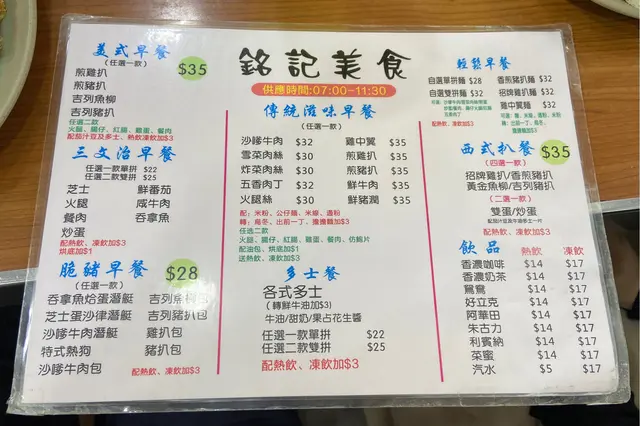 銘記美食
供應時間:07:00~11:30
美式早餐
(任選一款)
$35
煎雞扒
煎豬扒
吉列魚柳
吉列豬扒
任選二款
火腿、腸仔、紅腸、雞蛋、餐肉
配茄汁豆及多士、熱飲凍飲加$3
三文治早餐
任選一款單拼 $22
任選二款雙拼 $25
芝士 鮮番茄
火腿 咸牛肉
餐肉 吞拿魚
炒蛋
配熱飲、凍飲加$3
烘底加$1
脆豬早餐
(任選一款)
$28
吞拿魚烚蛋潛艇 吉列魚柳包
芝士蛋沙律潛艇 吉列豬扒包
沙嗲牛肉潛艇 雞扒包
特式熱狗 豬扒包
沙嗲牛肉包
配熱飲、凍飲加$3
傳統滋味早餐
(任選一款)
沙嗲牛肉 $30 雞中翼 $35
雪菜肉絲 $30 煎雞扒 $35
炸菜肉絲 $30 煎豬扒 $35
五香肉丁 $32 鮮牛肉 $35
火腿絲 $30 鮮豬潤 $35
配：米粉、公仔麵、米線、通粉
轉：烏冬、出前一丁、擔擔麵加$3
任選二款
火腿、腸仔、紅腸、雞蛋、餐肉、仿鮑片
配油包、烘底加$1
送熱飲、凍飲加$3
多士餐
各式多士
(轉鮮牛油加$3)
牛油/甜奶/果占花生醬
任選一款單拼 $22
任選二款雙拼 $25
配熱飲、凍飲加$3
輕鬆早餐
自選單拼麵 $28 香煎豬扒麵 $32
自選雙拼麵 $32 招牌雞扒麵 $32
雞中翼麵 $32
配熱飲、凍飲加$3
西式扒餐
(四選一款)
$35
招牌雞扒/香煎豬扒
黃金魚柳/吉列豬扒
(二選一款)
雙蛋/炒蛋
配熱飲、凍飲加$3
飲品 熱飲 凍飲
香濃咖啡 $14 $17
香濃奶茶 $14 $17
鴛鴦 $14 $17
好立克 $14 $17
阿華田 $14 $17
朱古力 $14 $17
利賓納 $14 $17
菜蜜 $14 $17
汽水 $5 $17